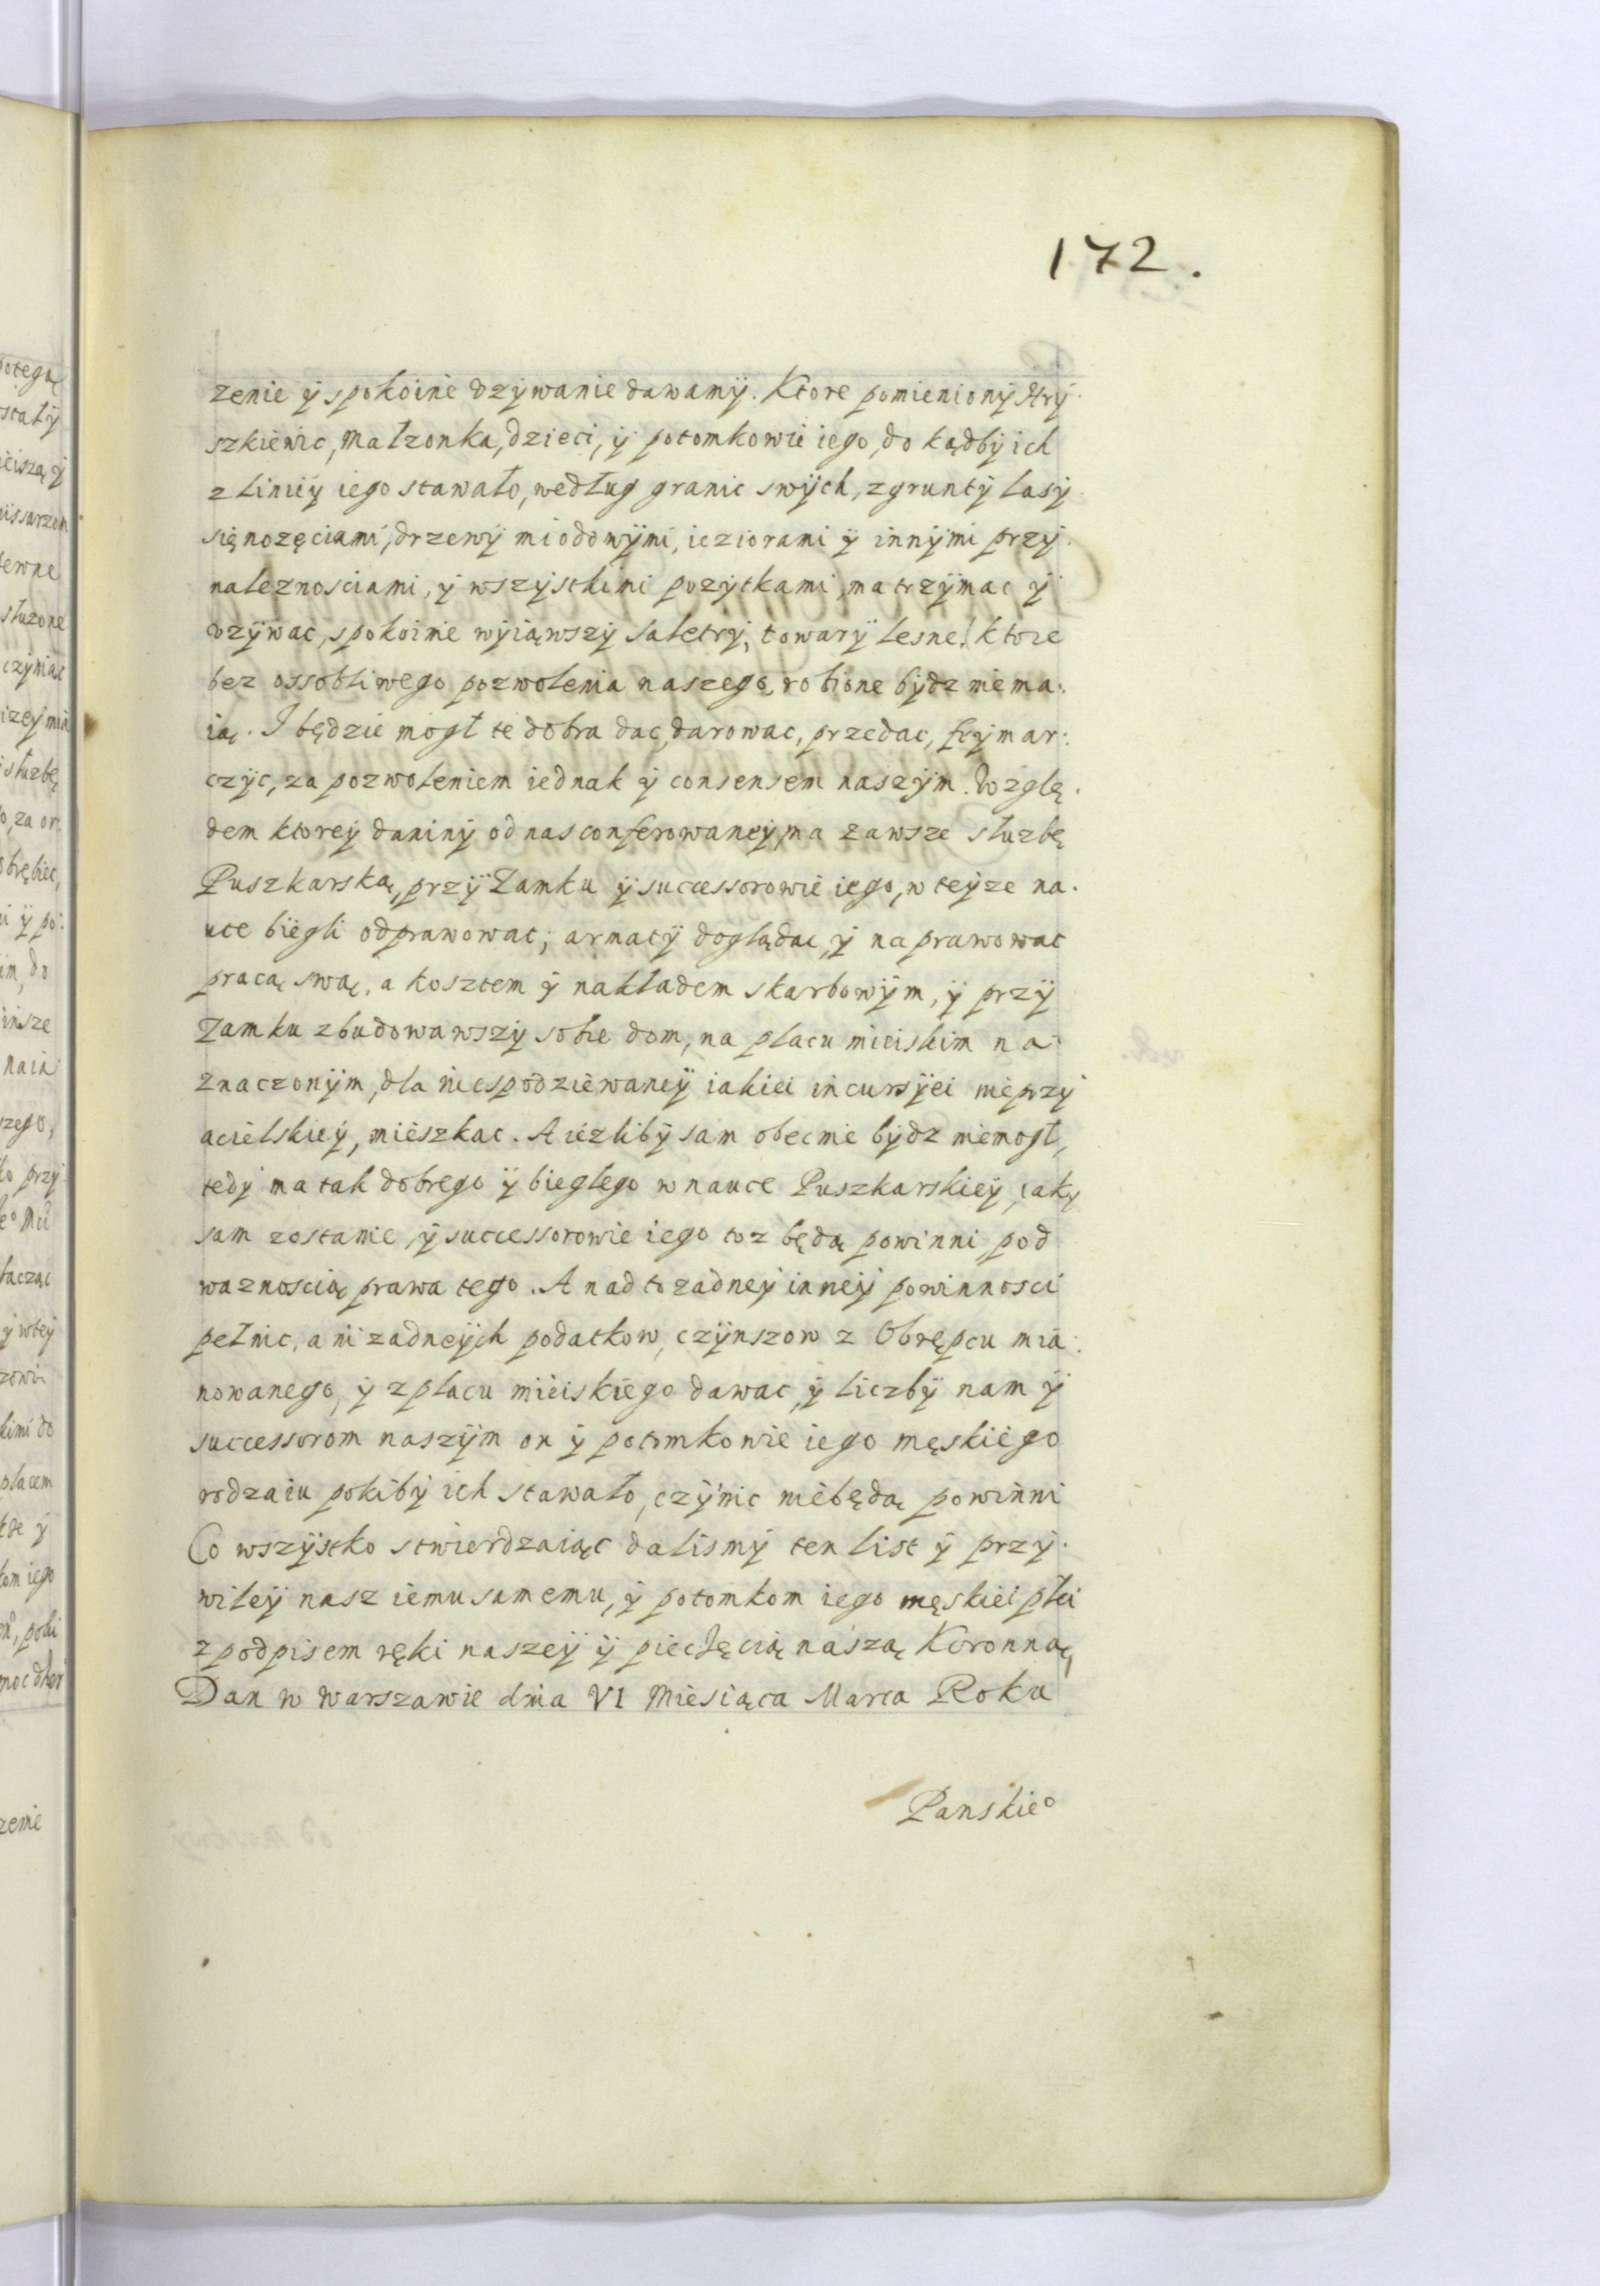 172.
zenie ÿ spokoine vzÿwanie dawamÿ. Ktore pomienionÿ Hrÿ:
szkiewic, małzonka, dzieci, ÿ potomkowie iego, do kądbÿ ich
z liniiÿ iego stawało, według granic swÿch, z gruntÿ lasÿ
sięnozęciami, drzewÿ miodowÿmi, ieziorami ÿ innÿmi przÿ:
naleznosciami, ÿ wszÿstkimi pozÿtkami, ma trzÿmac ÿ
vzÿwac, spokoinie wÿiąwszÿ saletrÿ, towarÿ lesne, ktore
bez ossobliwego pozwolenia naszego, robione bÿdz niema:
ią. I będzie mogł te dobra dac, darowac, przedac, frÿmar:
czÿc, za pozwoleniem iednak ÿ consensem naszÿm. Wzglę:
dem ktoreÿ daninÿ od nas conferowaneÿ, ma zawsze słuzbę
Puszkarską, przÿ Zamku ÿ successorowie iego, w teÿze na:
uce biegli odprawowac; armatÿ doglądac, ÿ naprawowac
pracą swą, a kosztem ÿ nakładem skarbowÿm, ÿ przÿ
Zamku zbudowawszÿ sobie dom, na placu mieiskim na
znaczonÿm, dla niespodziewaneÿ iakiei incursÿei nieprzÿ
acielskieÿ, mieszkac. A iezlibÿ sam obecnie bÿdz niemogł,
tedÿ ma tak dobrego ÿ biegłego w nauce Puszkarskieÿ, iakÿ
sam zostanie, ÿ successorowie iego toz będą powinni pod
waznoscią prawa tego. A nad to zadneÿ inneÿ powinnosci
pełnic, ani zadneÿch podatkow, czÿnszow z Obrępcu mia:
nowanego, ÿ z placu mieiskiego dawac, ÿ liczbÿ nam ÿ
successorom naszÿm on ÿ potomkowie iego męskiego
rodzaiu pokibÿ ich stawało, czÿnic niebędą powinni
Co wszÿstko stwierdzaiąc dalismÿ ten list ÿ przÿ:
wileÿ nasz iemu samemu, ÿ potomkom iego męskiei płci
z podpisem ręki naszeÿ ÿ pieczęcią naszą Koronną,
Dan w Warszawie dnia VI Miesiąca Marca Roku
Panskie°